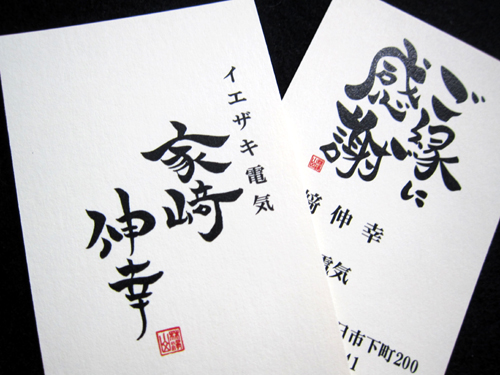 イエザキ電気
家﨑
伸幸
ご縁に
感謝
﨑伸幸
電気
日市下町200
41